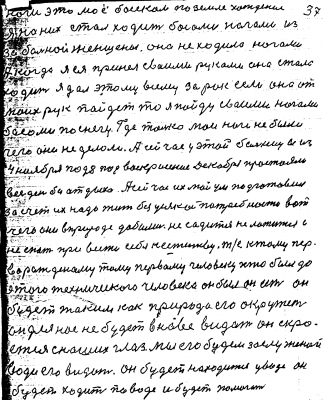 37
ноги это моё босиком по земле хождение
я на них стал ходит босыми ногами из
за больной женщены. она не ходила ногами
а когда я ея принел своими руками она стала
ходит я дал этому всему зарок если она от
моих рук пайдет то я пойду своими ногами
босыми по снегу. Где только мои ноги не были
чего они не делали. А сейчас у этой
4 ноября под 8 под воскресение Декабря простоять
без отдыха. А сейчас их мой ум подготовил
за счет их надо жить без всякой потребности вот
чего они в природе добились. не садится не ложится и
не спат при вести себя к к тому пер-
ворожденому тому первому человеку кто был до
этого технического человека он был он ест он
будет таким как природа его окружает
он для нас не будет вновь виден он скро-
ется с наших глаз. мы его будем
воде его видит. он будет находится у воде он
будет ходит по воде и будет помогат